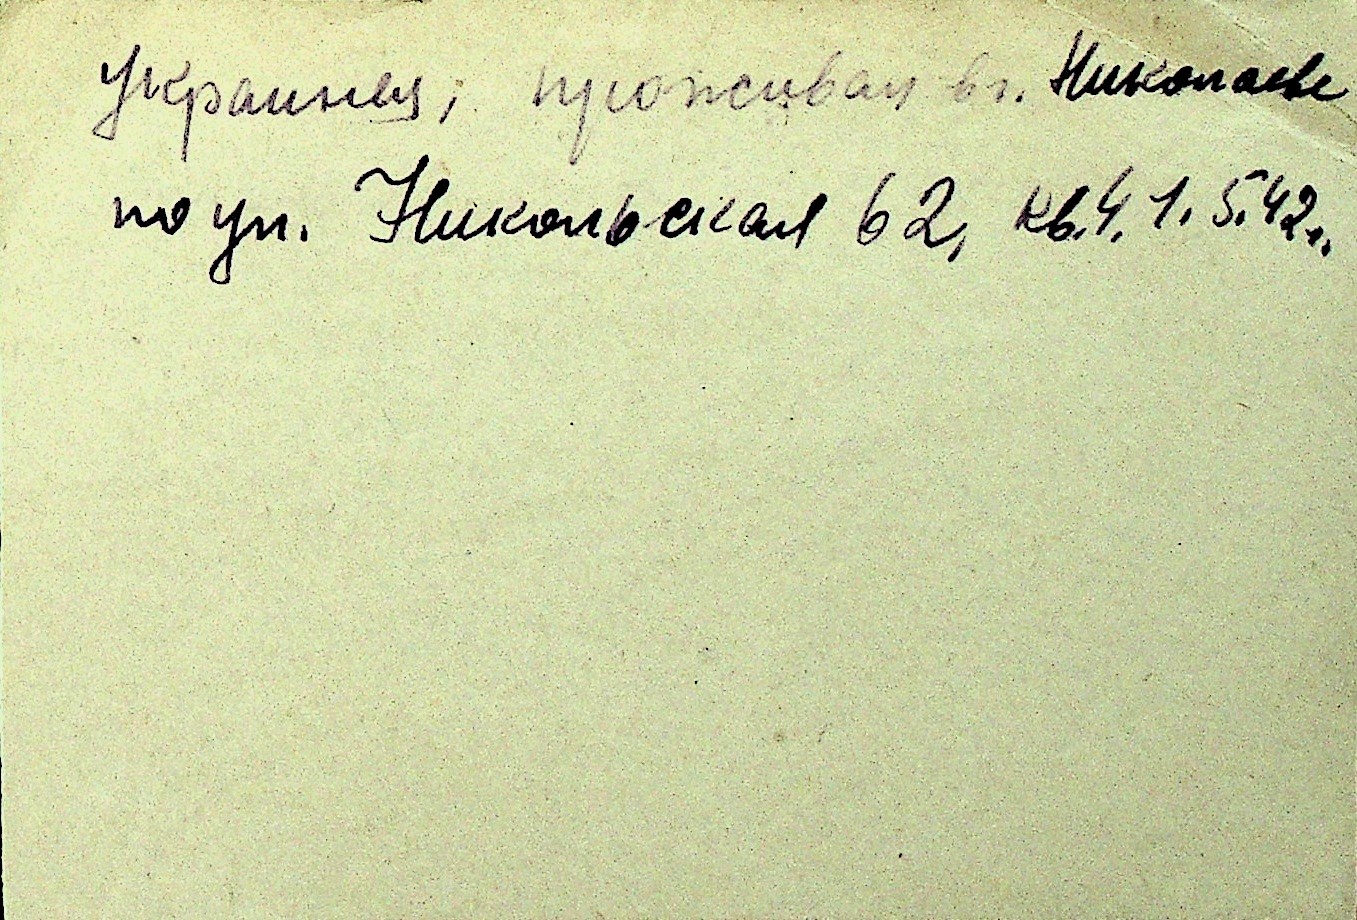 Украинец; проживал в г. Николаеве
по ул. Никольская 62, кв. 4. 1. 5. 42 г.